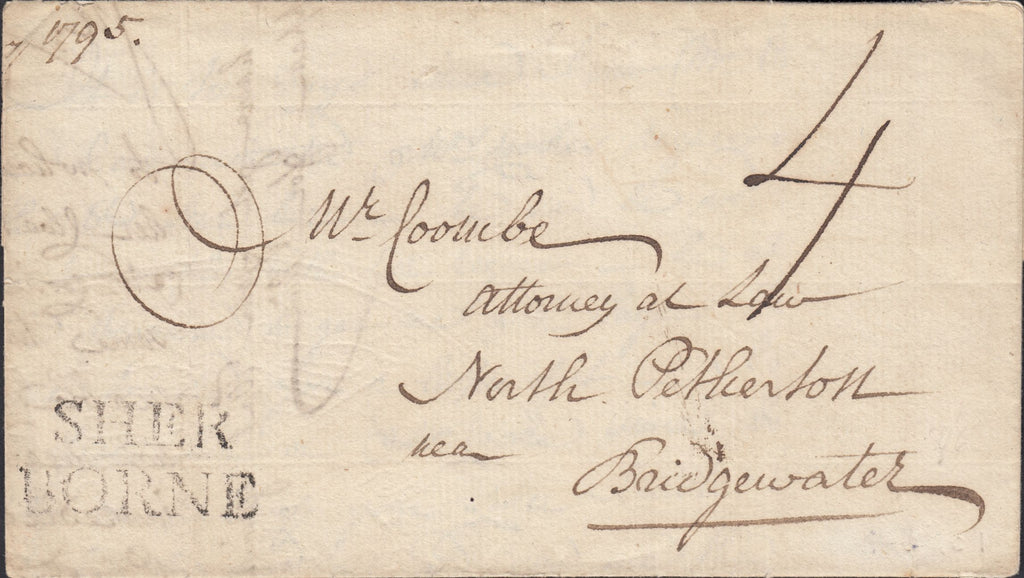 1795.
4
Mr Coombe
Attorney at Law
North Petherton
near
Bridgewater
SHER
BORNE